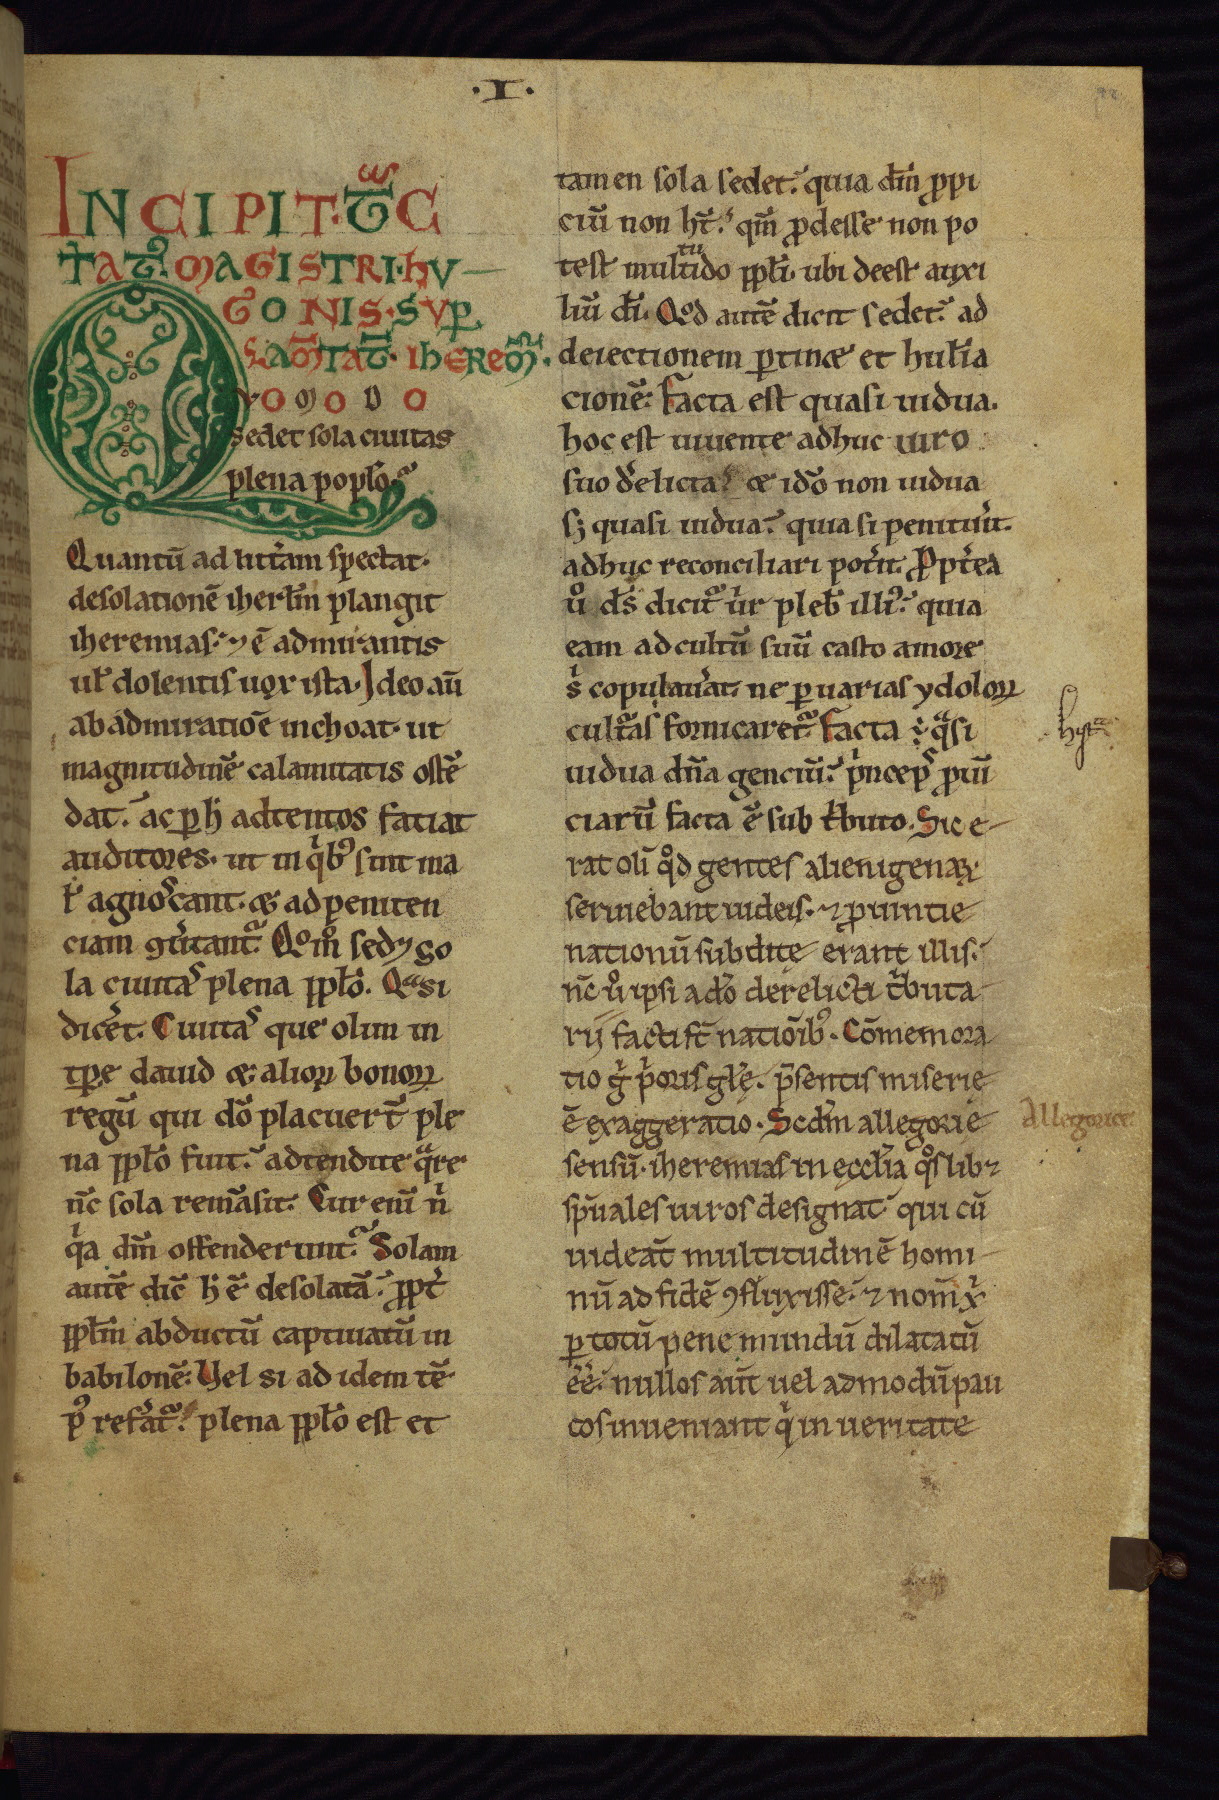 ·I·
INCIPIT·T̅C
TAT̅·MAGISTRI·HV
GONIS·SVP̱
LAM̅TAT̅·IHEREM̅·
QVOMODO
sedet sola ciuitas
plena popl̅o.
Quantū ad litt̅am spectat·
desolationē iherl̅m plangit
iheremias· ⁊ ē admirantis
ul̅ dolentis uox ista· Ideo aū
ab admiratiōe inchoat· ut
magnitudinē calamitatis ostē
dat· ac ꝑ h̅ adtentos faciat
auditores· ut in qͥb⁹ sint ma
l̅ agnoscant· & ad peniten
ciam ꝯu̅tant᷑· Qūom̊ sedꝫ so
la ciuitas plena ppl̅o· Qᵃsi
dicer̅et· Ciuitas que olim in
tp̅e dauid & alioꝝ bonoꝝ
regū qui dō placuer̅t ple
na ppl̅o fuit· adtendite qᵃre
nc̅ sola remāsit· Cur enī n̅
qͥa dm̅ offenderunt· Solam
autē dic̅ h̅ ē desolatā· ppt̅
ppl̅m abductū captiuatū in
babilonē· Vel si ad idem tē
p⁹ refer̅at᷑· plena ppl̅o est et
tamen sola sedet· quia dm̅ ꝓpi
ciū non ht̅· qm̅ ꝓdesse non po
test multitudo ppl̅i· ubi deest auxi
liū di̅· Qod autē dicit sedet· ad
deiectionem ꝑtinet et humil̅ia
cionē· Facta est quasi uidua·
hoc est uiuente adhuc uiro
suo d̅elicta· & idō non uidua
sꝫ quasi uidua· quia si penituer̅it·
adhuc reconciliari poter̅it· Ꝓpt̅ea
ů ds̅ dicit᷑ uir pleb̅ illi⁹· quia
eam ad cultū suū casto amore
s̅ copulauer̅at· ne ꝑ uarias ydoloꝝ
cultᵃs fornicaret᷑· Facta ÷ qᵃsi
uidua dn̅a genciū· pͥnceps ꝓuī
ciarū facta ē sub tͥbuto· Sic e
rat olī qͦd gentes alienigenaꝝ
seruiebant iudeis· ⁊ ꝓuintie
nationū subditę erant illis·
nc̅ ů ipsi a dō derelicti tͥbuta
rij facti st̅ nationib⁹· Cōmemora
tio g̊ pͥoris glę̅· p̅sentis miserie
ē exaggeratio· Scdm̅ allegorie
sensū· iheremias in eccl̅ia qͦslib₂
sp̅uales uiros designat· qui cū
uideāt multitudinē homi
nū ad fidē ꝯfluxisse· ⁊ nom̅ xͥ
ꝑ totū pene mundū dilatatū
ee̅· nullos aūt uel admodū pau
cos inueniant qͥ in ueritate
hystᵃ
Allegorice